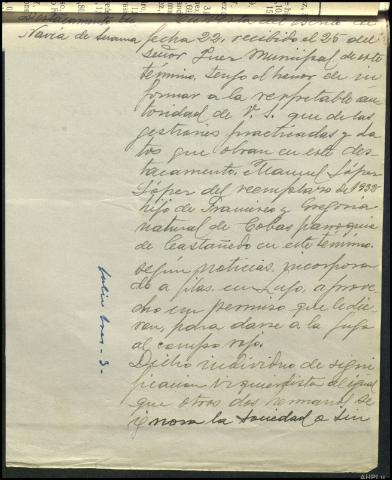 Destacamento de
Navia de Suarna
fecha 22, recibido el 25 del
Señor Juez Municipal de este
término, tengo el honor de in
formar a la respetable au
toridad de V.S. que de las
gestiones practicadas y da
tos que obran en este des
tacamento, Manuel López
López del reemplazo de 1938
hijo de Francisco y Gregoria
natural de Cobas parroquia
de Castañedo en este término.
según noticias, incorpora
do a filas, en Lugo, aprove
cho un permiso que le die
ron, para darse a la fuga
al campo rojo.
Dicho individuo de signi
ficacion izquierdista al igual
que otros dos hermanos, se
ignora la Sociedad o Sin
AHPLU